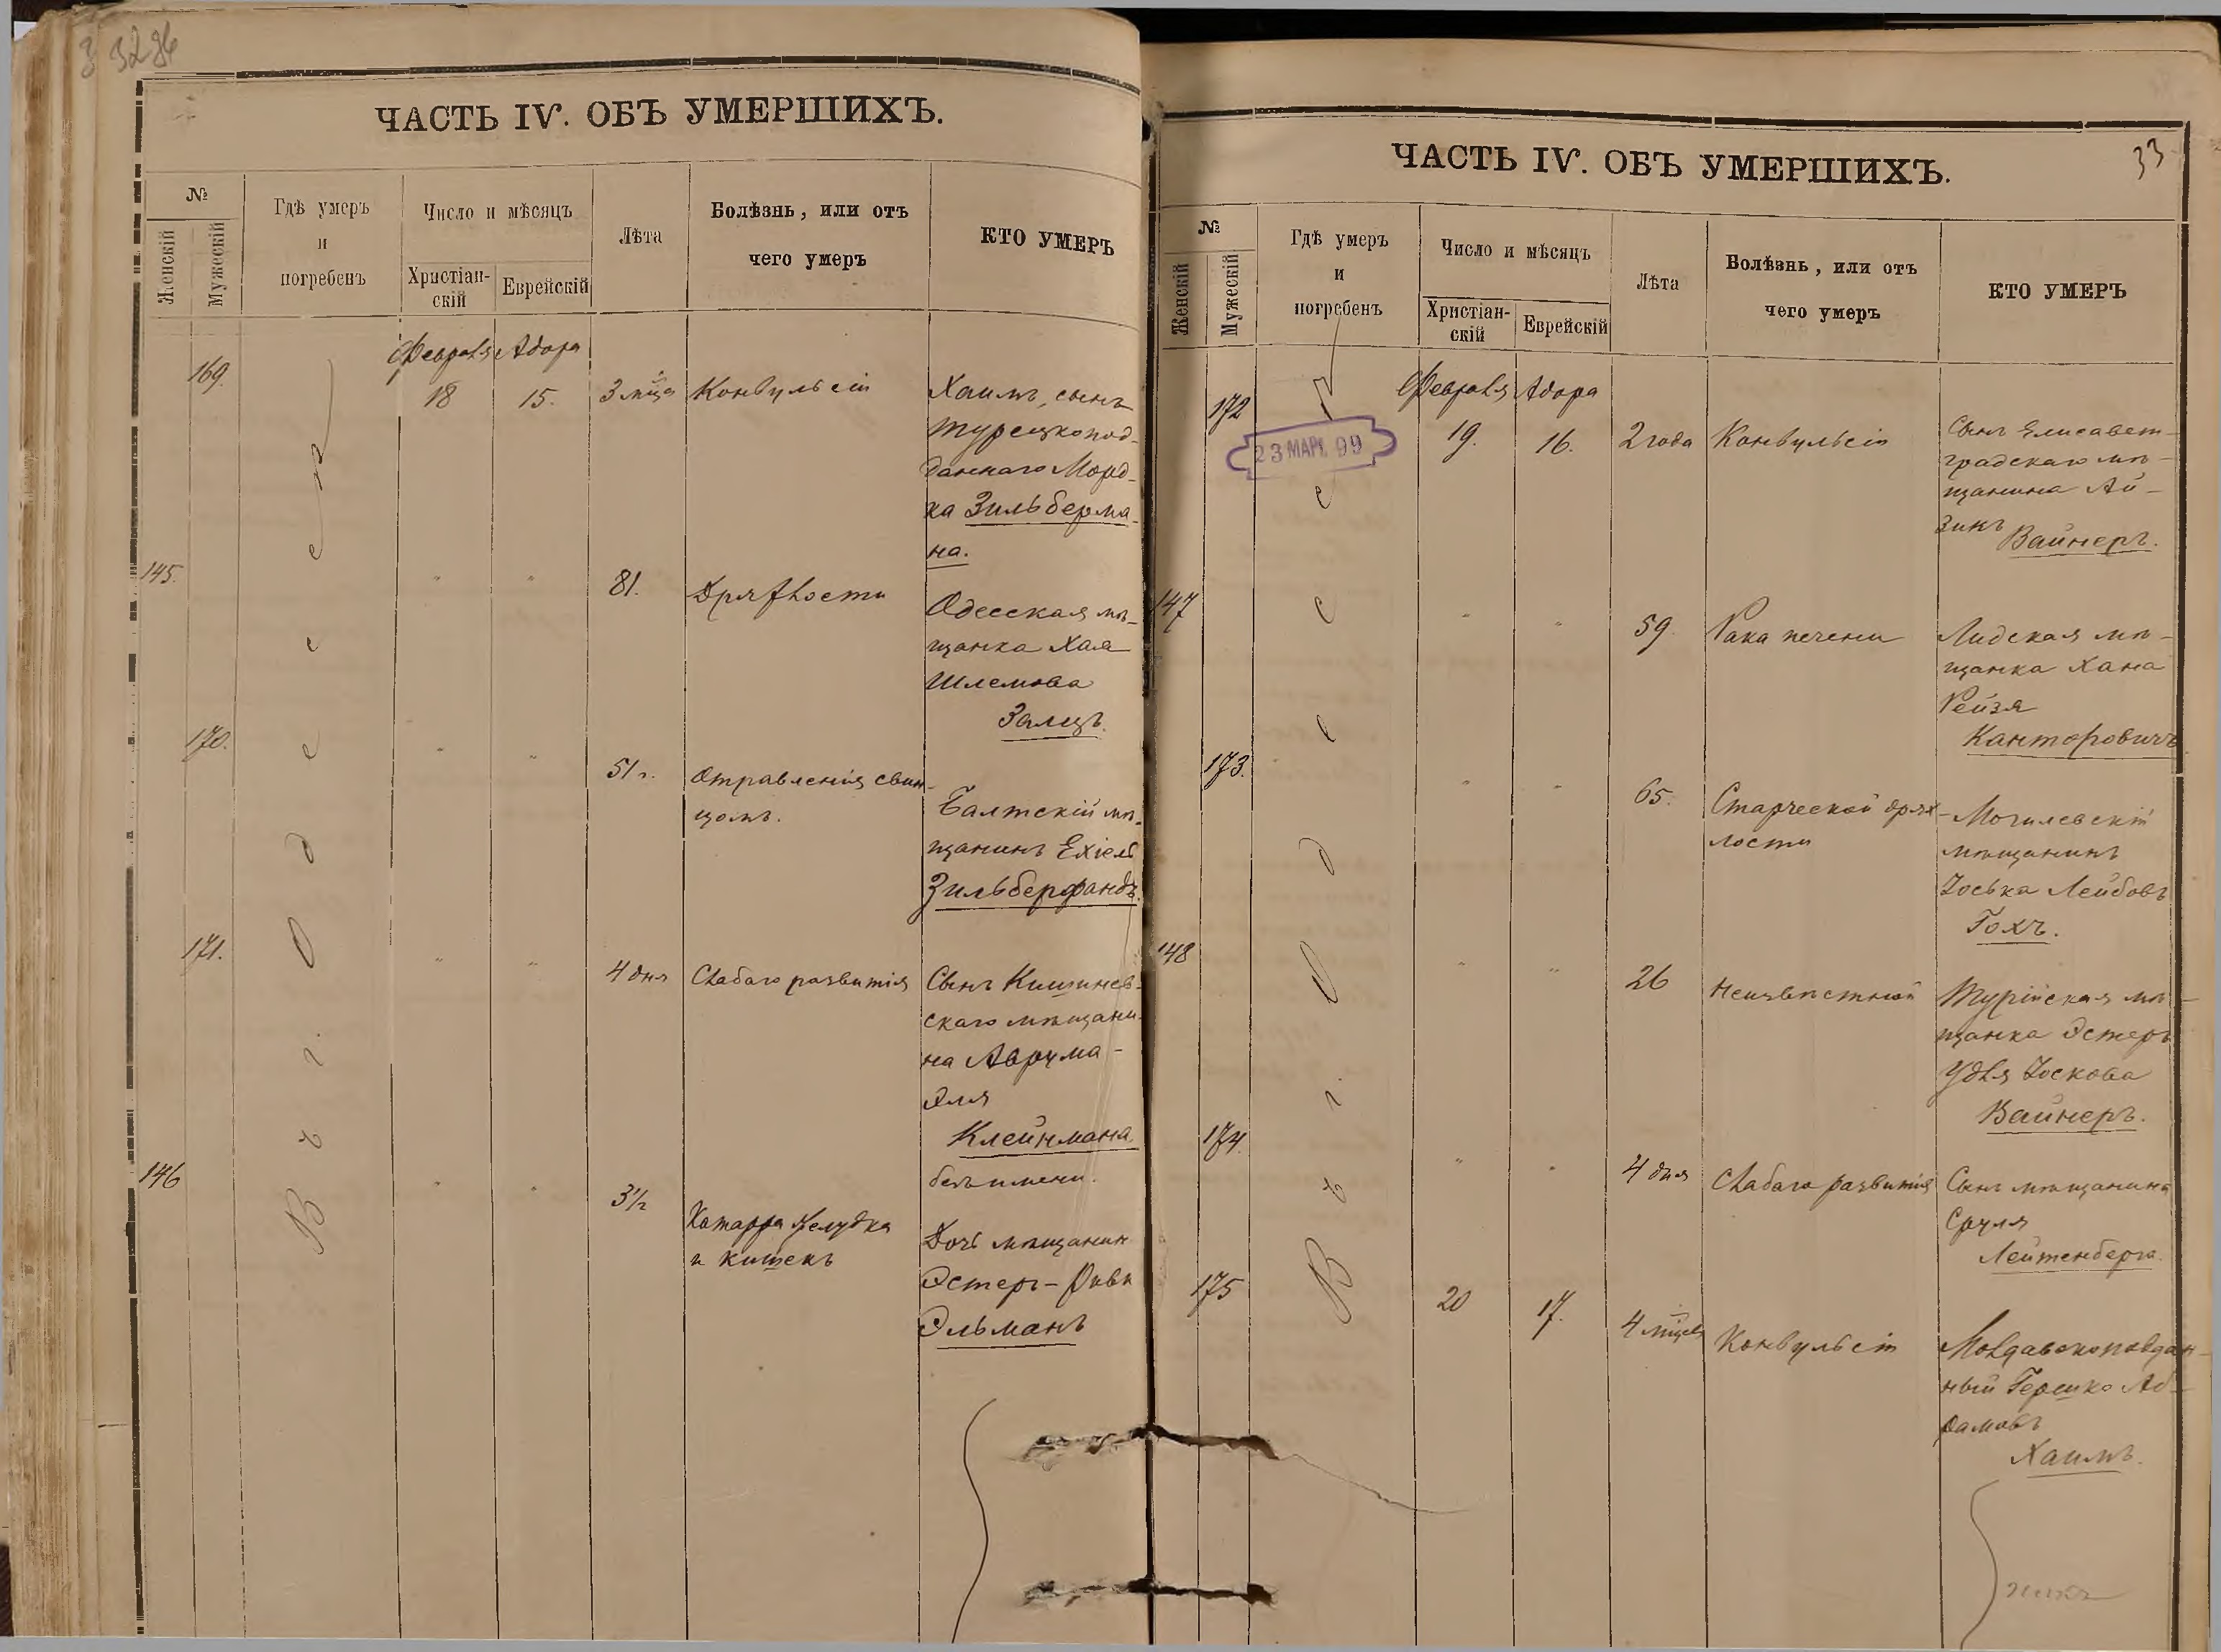 3286
ЧАСТЬ IV. ОБЪ УМЕРШИХЪ.
№
Женскій
Мужескій
Гдѣ умеръ
и
погребенъ
Число и мѣсяцъ
Христіан-
скій
Еврейскій
Лѣта
Болѣзнь, или отъ
чего умеръ
КТО УМЕРЪ
В г. Одессѣ
Февраля Адара
169. 18 15. 3 мѣс Конвульсій
Хаимъ, сынъ
турецкопод-
даннаго Морд-
ка Зильберма-
на.
145. " " 81. Дряхлости
Одесская мѣ-
щанка Хая
Шлемова
Залцъ.
170. " " 51 г. Отравленія свин-
цомъ.
Балтскій мѣ-
щанинъ Ехіель
Зильберфандъ.
171. " " 4 дня Слабаго развитія
Сынъ Кишинев-
скаго мѣщани-
на Аврума-
Эля
Клейнмана
безъ имени.
146 " " 3½ Катарра желудка
и кишекъ
Дочь мѣщанин
Эстеръ-Ривк
Эльманъ
33
ЧАСТЬ IV. ОБЪ УМЕРШИХЪ.
№
Женскій
Мужескій
Гдѣ умеръ
и
погребенъ
Число и мѣсяцъ
Христіан-
скій
Еврейскій
Лѣта
Болѣзнь, или отъ
чего умеръ
КТО УМЕРЪ
В г. Одессѣ
23 МАР. 99
Февраля Адара
172 19. 16. 2 года Конвульсій
Сынъ Елисавет-
градскаго мѣ-
щанина Ай-
зикъ
Вайнеръ.
147 " " 59. Рака печени
Лидская мѣ-
щанка Хана
Рейзя
Канторовичъ
173. " " 65. Старческой дрях-
лости
Могилевскій
мѣщанинъ
Іоська Лейбовъ
Гохъ.
148 " " 26 Неизвѣстной
Турійская мѣ-
щанка Эстеръ
Удля Іоскова
Вайнеръ.
174. " " 4 дня Слабаго развитія
Сынъ мѣщанина
Сруля
Лейтенберга.
175 20 17. 4 мѣсец Конвульсій
Молдавскоподдан-
ный Гершко Аб-
рамовъ
Хаимъ.